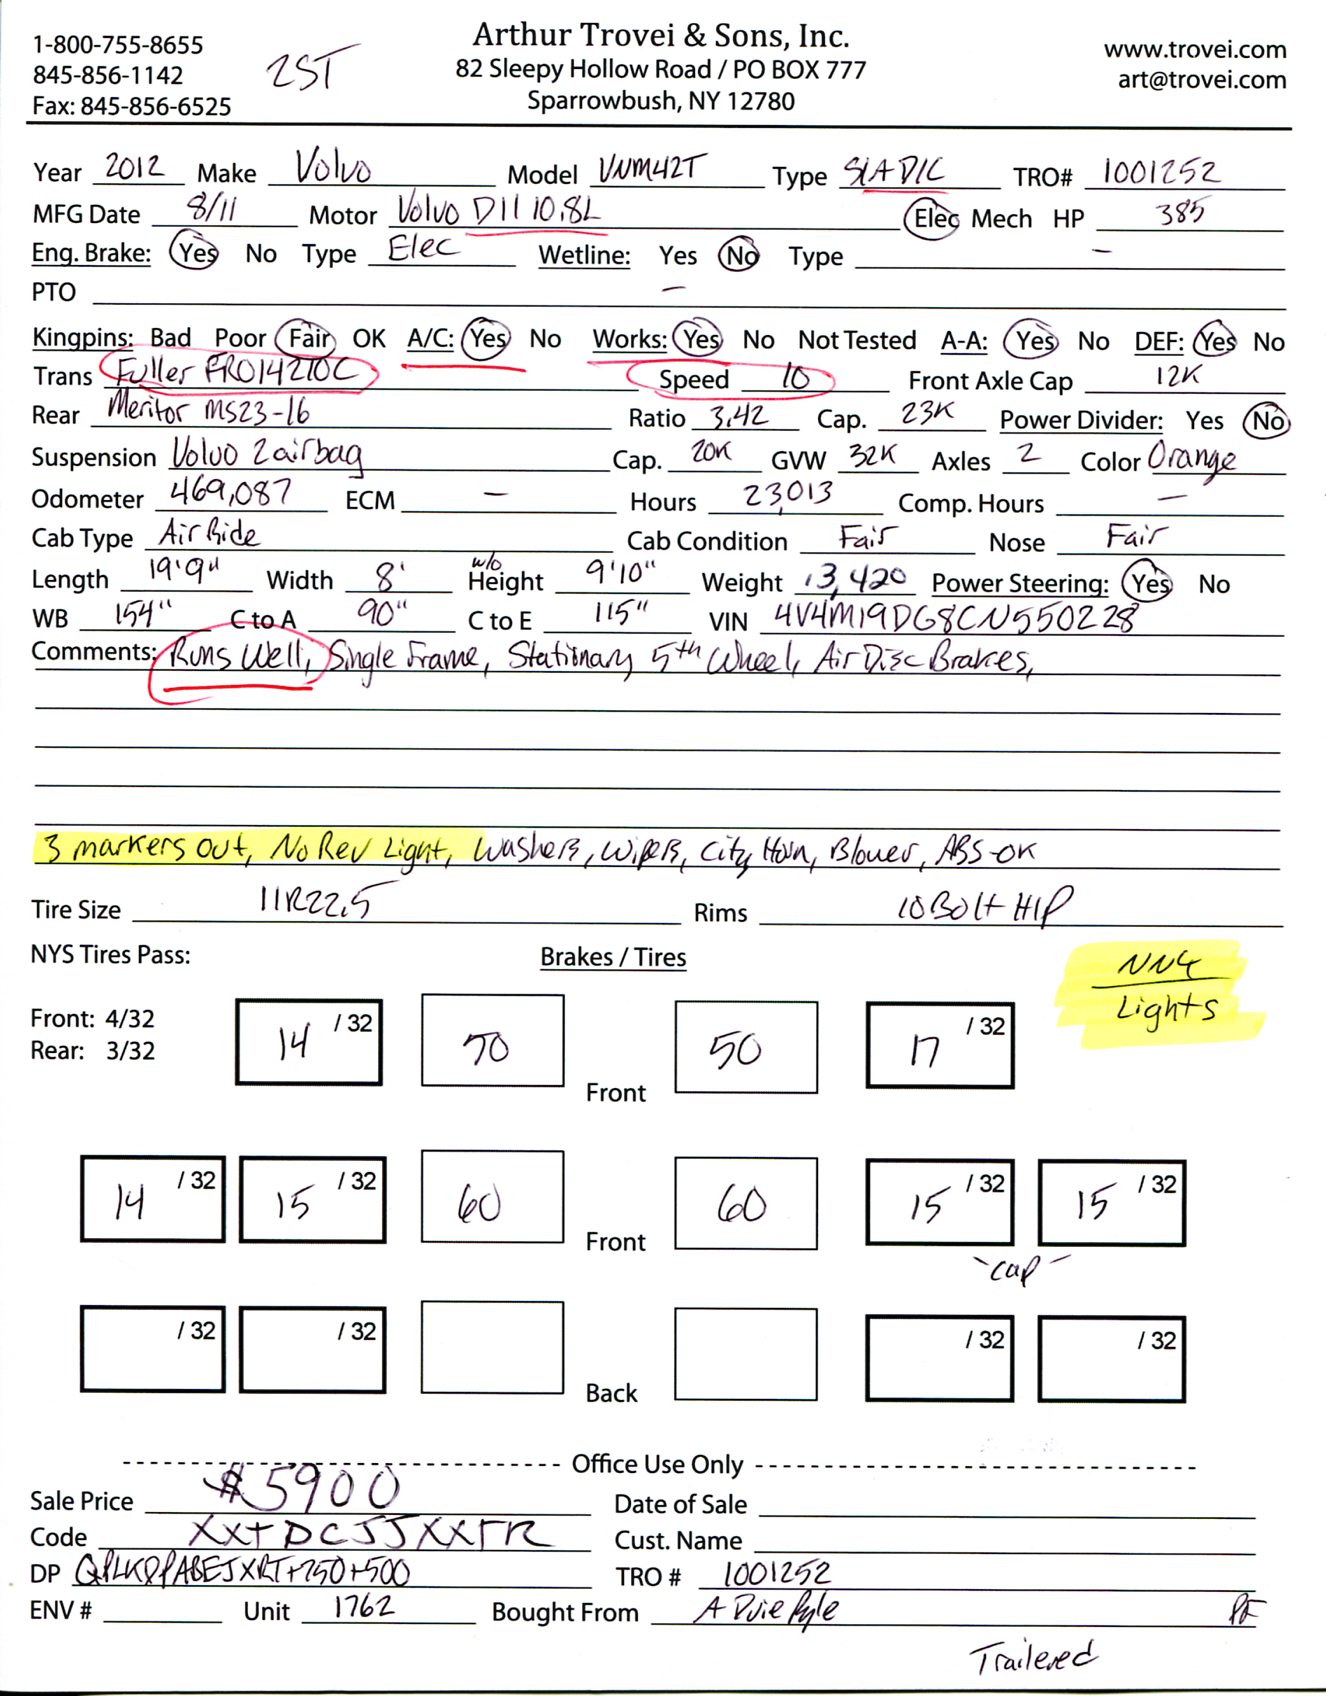 1-800-755-8655
845-856-1142
Fax: 845-856-6525
2ST
Arthur Trovei & Sons, Inc.
82 Sleepy Hollow Road / PO BOX 777
Sparrowbush, NY 12780
www.trovei.com
art@trovei.com
Year 2012 Make Volvo Model VNM42T Type S/A D/C TRO# 1001252
MFG Date 8/11 Motor Volvo D11 10.8L Elec Mech HP 385
Eng. Brake: Yes No Type Elec Wetline: Yes No Type —
PTO —
Kingpins: Bad Poor Fair OK A/C: Yes No Works: Yes No Not Tested A-A: Yes No DEF: Yes No
Trans Fuller FRO14210C Speed 10 Front Axle Cap 12K
Rear Meritor MS23-16 Ratio 3.42 Cap. 23K Power Divider: Yes No
Suspension Volvo 2 airbag Cap. 20K GVW 32K Axles 2 Color Orange
Odometer 469,087 ECM — Hours 23,013 Comp. Hours —
Cab Type Air Ride Cab Condition Fair Nose Fair
Length 19'9" Width 8' w/o Height 9'10" Weight 13,420 Power Steering: Yes No
WB 154" C to A 90" C to E 115" VIN 4V4M19DG8CN550228
Comments: Runs Well, Single Frame, Stationary 5th Wheel, Air Disc Brakes,
3 markers out, No Rev Light, Washers, Wipers, City Horn, Blower, ABS-OK
Tire Size 11R22.5 Rims 10 Bolt H/P
NYS Tires Pass: Brakes / Tires
NNG
Lights
Front: 4/32
Rear: 3/32
14 /32 70 Front 50 17 /32
14 /32 15 /32 60 Front 60 15 /32 15 /32
-cap-
/32 /32 Back /32 /32
Office Use Only
Sale Price $5900 Date of Sale
Code XX+DCJJXXFR Cust. Name
DP +750+500 TRO # 1001252
ENV # Unit 1762 Bought From A Duie Pyle PF
Trailered